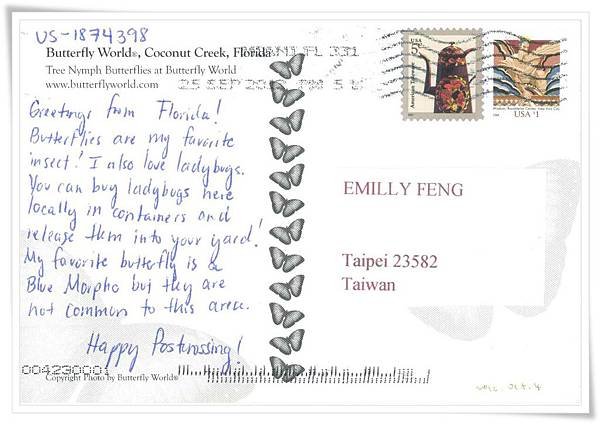 US-1874398
Butterfly World®, Coconut Creek, Florida
Tree Nymph Butterflies at Butterfly World
www.butterflyworld.com
MIAMI FL 331
25 SEP
Greetings from Florida!
Butterflies are my favorite
insect! I also love ladybugs.
You can buy ladybugs here
locally in containers and
release them into your yard!
My favorite butterfly is a
Blue Morpho but they are
not common to this area.
Happy Postcrossing!
004230001
Copyright Photo by Butterfly World®
USA
5c
American Toleware
USA $1
EMILLY FENG
Taipei 23582
Taiwan